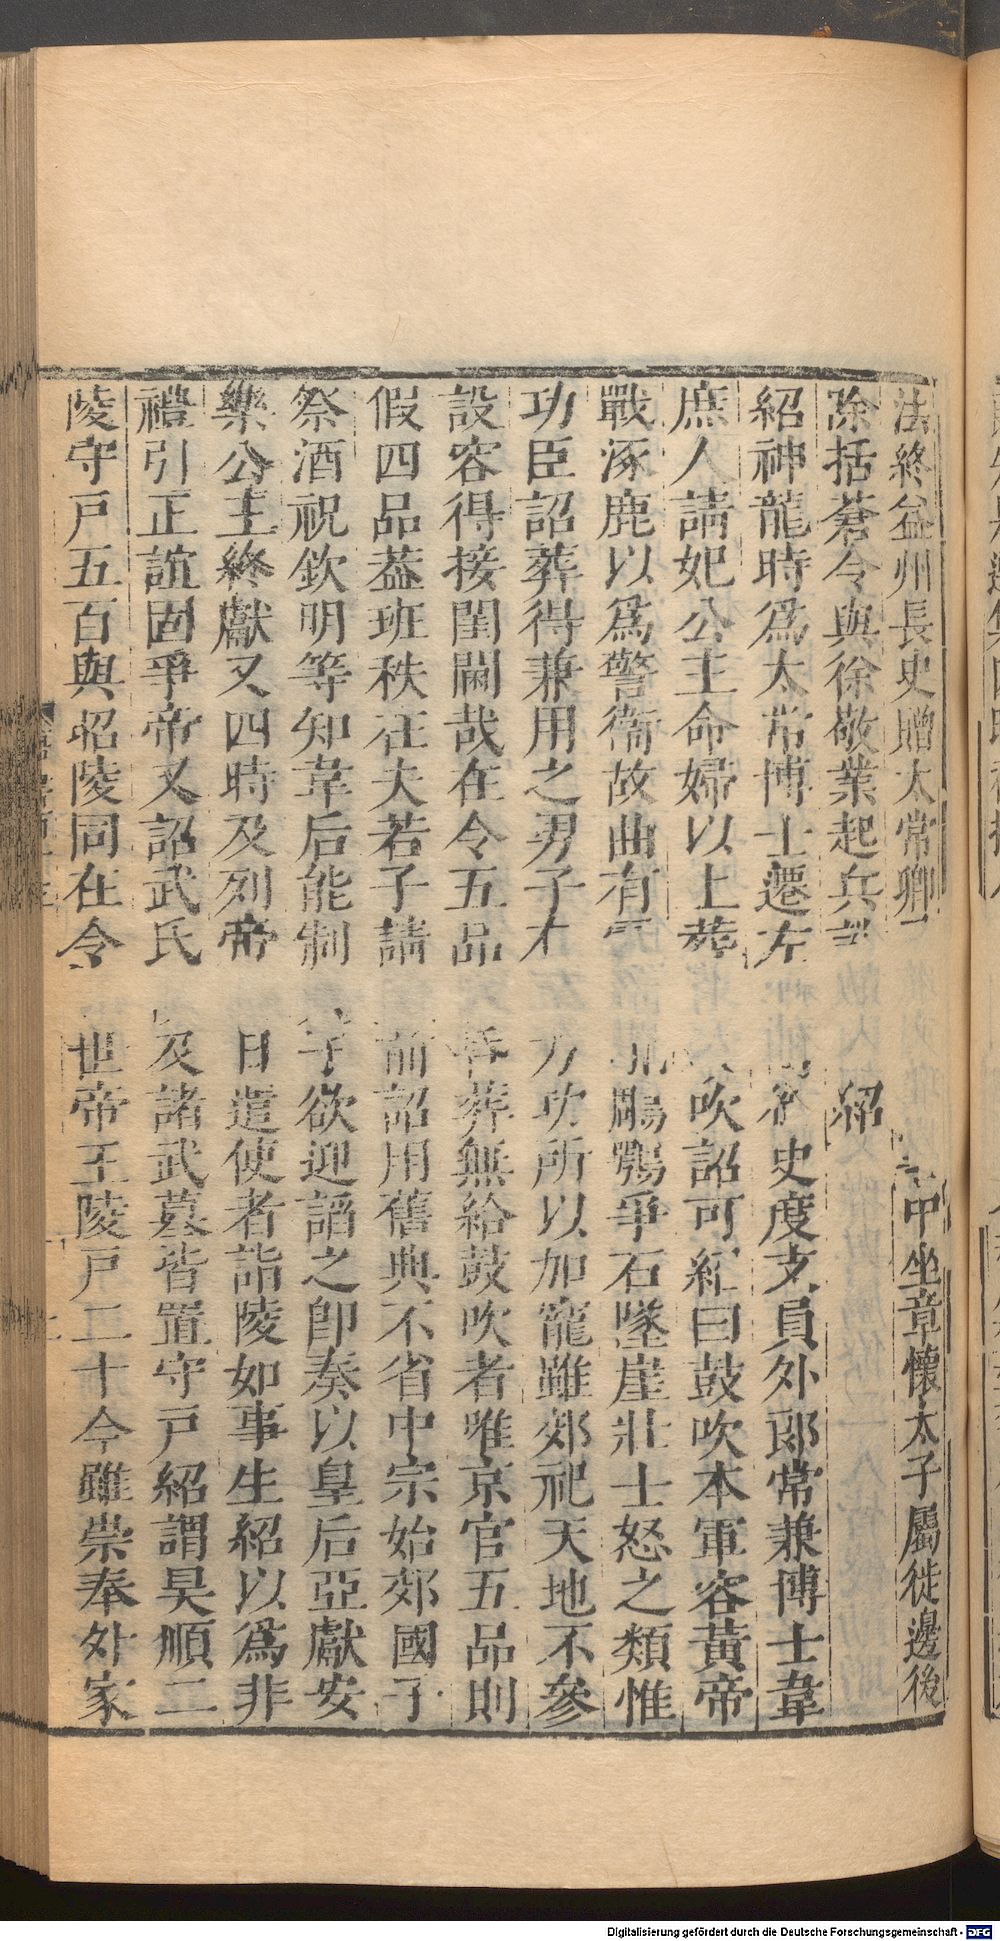 法終益州長史贈太常卿中坐章懷太子屬徙邊後
除括蒼令與徐敬業起兵紹
紹神龍時爲太常博士遷左史度支員外郎常兼博士韋
庶人請妃公主命婦以上葬吹詔可紹曰鼓吹本軍容黃帝
戰涿鹿以爲警衞故曲有鵰鶚爭石墜崖壯士怒之類惟
功臣詔葬得兼用之男子有方功所以加寵雖郊祀天地不參
設容得接閨閫哉在令五品葬無給鼓吹者唯京官五品則
假四品葢班秩在夫若子請前詔用舊典不省中宗始郊國子
祭酒祝欽明等知韋后能制子欲迎諂之卽奏以皇后亞獻安
樂公主終獻又四時及列帝日遣使者詣陵如事生紹以爲非
禮引正誼固爭帝又詔武氏及諸武墓皆置守戶紹謂昊順二
陵守戶五百與昭陵同在令世帝王陵戶二十今雖崇奉外家
Digitalisierung gefördert durch die Deutsche Forschungsgemeinschaft - DFG